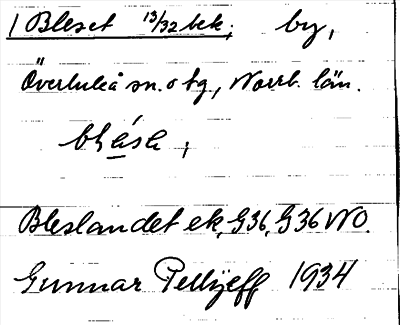 1 Bleset 13/32 bek; by,
Överluleå sn. o tg, Norrb. län.
Bleslandet ek, G36, G36 NO.
Gunnar Pellijeff 1934